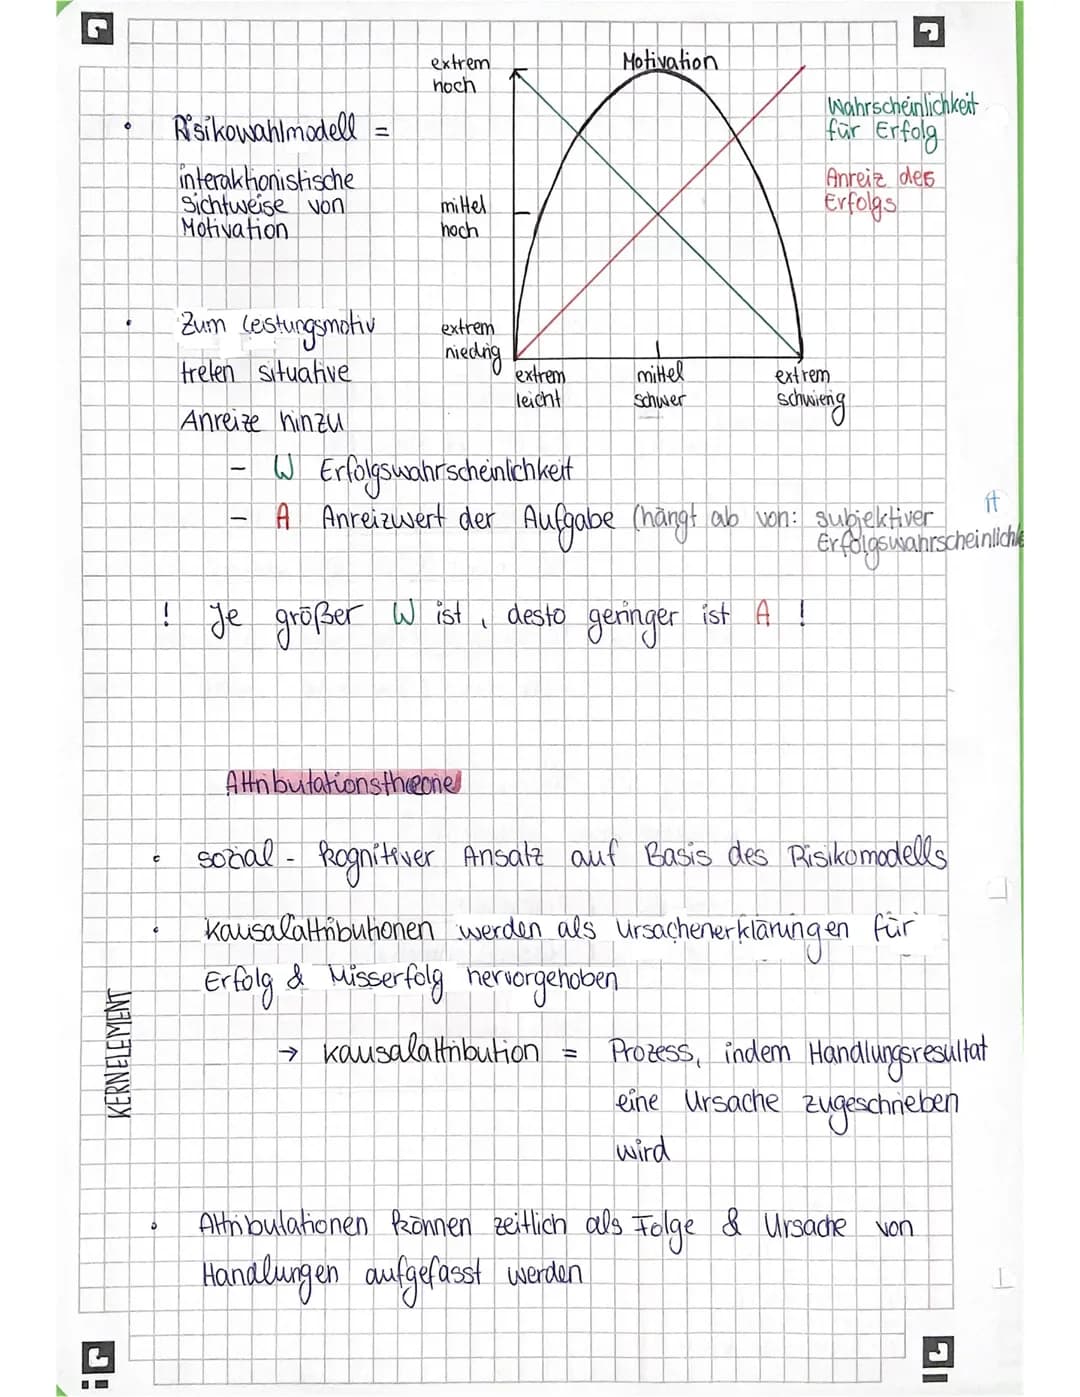 extrem
hoch
Motivation
Wahrscheinlichkeit
für Erfolg
Anreiz des
Erfolgs
• Risikowahlmodell =
interaktionistische
Sichtweise von
Motivation
mittel
hoch
• Zum Leistungsmotiv
treten situative
Anreize hinzu
extrem
niedrig
extrem
leicht
mittel
schwer
extrem
schwierig
- W Erfolgswahrscheinlichkeit
- A Anreizwert der Aufgabe (hängt ab von: subjektiver
Erfolgswahrscheinlichk
! Je größer W ist, desto geringer ist A !
Attributationstheorie
• sozial - kognitiver Ansatz auf Basis des Risikomodells
• Kausalattributionen werden als Ursachenerklärungen für
Erfolg & Misserfolg hervorgehoben
KERNELEMENT
→ Kausalattribution = Prozess, indem Handlungsresultat
eine Ursache zugeschrieben
wird
• Attributationen können zeitlich als Folge & Ursache von
Handlungen aufgefasst werden